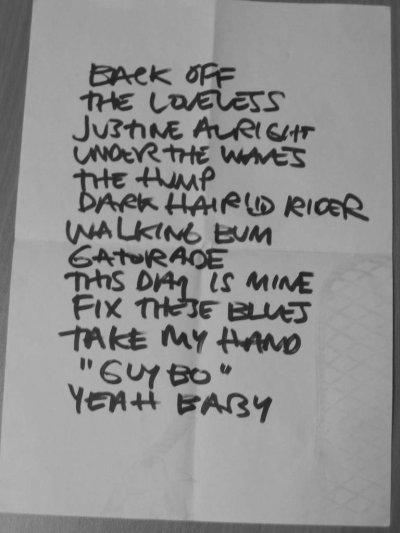 BACK OFF
THE LOVELESS
JUSTINE ALRIGHT
UNDER THE WAVES
THE HUMP
DARK HAIRED RIDER
WALKING BUM
GATORADE
THIS DAY IS MINE
FIX THESE BLUES
TAKE MY HAND
"GUY BO"
YEAH BABY